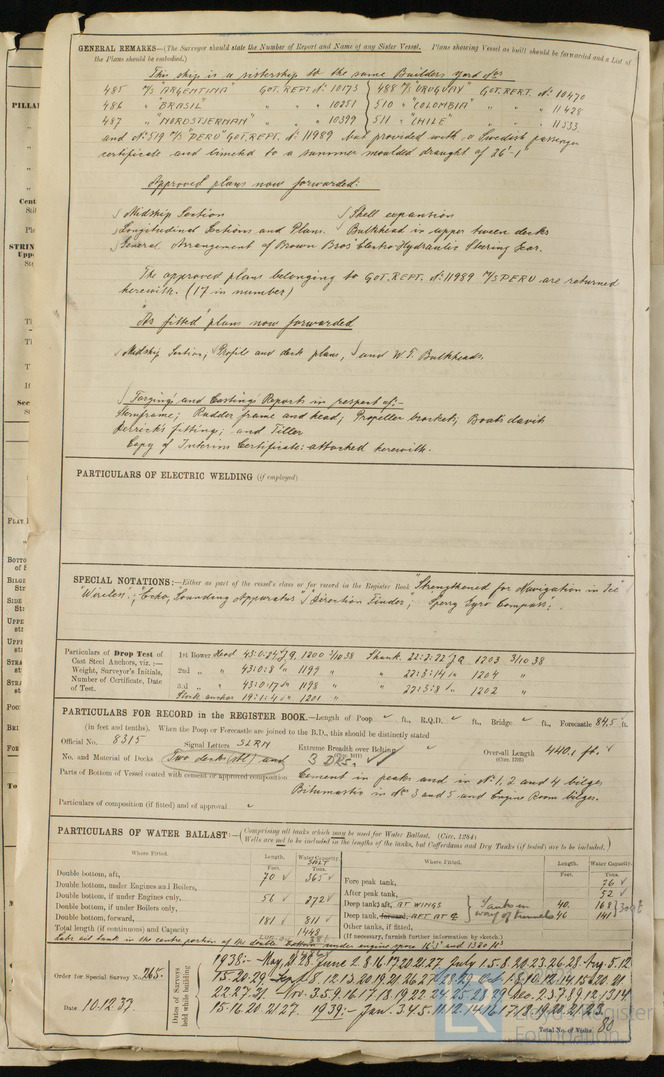 GENERAL REMARKS—(The Surveyor should state the Number of Report and Name of any Sister Vessel. Plans showing Vessel as built should be forwarded and a List of
the Plans should be embodied.)
This ship is a sistership to the same Builders yard Nos
485 M/S "ARGENTINA" GOT. REPT No. 10173 } 488 M/S "URUGUAY" GOT. REPT. No. 10470
486 " "BRASIL" " " 10251 } 510 " "COLOMBIA" " " 11428
487 " "NORDSTJERNAN" " " 10399 } 511 " "CHILE" " " 11533
and No. 519 M/S "PERU" GOT. REPT. No. 11989 but provided with a Swedish passenger
certificate and limited to a summer moulded draught of 26'-1"
Approved plans now forwarded:
Midship Section Shell expansion
Longitudinal Sections and Plans. Bulkhead in upper tween decks
General Arrangement of Brown Bros' Electro-Hydraulic Steering Gear.
The approved plans belonging to GOT. REPT. No. 11989 M/S PERU are returned
herewith. (17 in number)
"As fitted" plans now forwarded
Midship Section, Profile and deck plans, and W.T. Bulkheads.
Forgings and Castings Reports in respect of:-
Sternframe; Rudder frame and head; Propeller brackets; Boats davits
Derricks fitting; and Tiller
Copy of Interim Certificate: attached herewith.
PARTICULARS OF ELECTRIC WELDING (if employed)
SPECIAL NOTATIONS:—Either as part of the vessel's class or for record in the Register Book "Strengthened for Navigation in Ice"
"Wireless"; "Echo Sounding Apparatus" "Direction Finder"; "Sperry Gyro Compass:
Particulars of Drop Test of
Cast Steel Anchors, viz. :—
Weight, Surveyor's Initials,
Number of Certificate, Date
of Test.
1st Bower Head 43:0:24 1200 3/10 38 Shank. 22:2:22 1203 3/10 38
2nd " " 43:0:8 " 1199 " " 22:3:14 " 1204 "
3rd " " 43:0:17 " 1198 " " 22:3:8 " 1202 "
Stock anchor 19:1:4 " 1201 "
PARTICULARS FOR RECORD in the REGISTER BOOK.—Length of Poop ft., R.Q.D. ft., Bridge ft., Forecastle 84.5 ft.
(in feet and tenths). When the Poop or Forecastle are joined to the B.D., this should be distinctly stated
Official No. 8315 Signal Letters SLRM Extreme Breadth over Belting Over-all Length 440.1 ft.
No. and Material of Decks Two decks (stl) and 3 DKs.
Parts of Bottom of Vessel coated with cement or approved composition Cement in peaks and in No. 1, 2 and 4 bilges
Bitumastic in No. 3 and 5 and Engine Room bilges.
Particulars of composition (if fitted) and of approval
PARTICULARS OF WATER BALLAST:—(Comprising all tanks which may be used for Water Ballast. (Circ. 1284)
Wells are not to be included in the lengths of the tanks, but Cofferdams and Dry Tanks (if tested) are to be included.)
Where Fitted. Length. Water Capacity. Where Fitted. Length. Water Capacity.
Feet. SALT Tons. Feet. Tons.
Double bottom, aft, 70 365 Fore peak tank, 76
Double bottom, under Engines and Boilers, After peak tank, 52
Double bottom, if under Engines only, 56 272 Deep tank, aft, AT WINGS } Tanks in 40. 168
Double bottom, if under Boilers only, Deep tank, forward, AFT AT ₵ } way of tunnels 46 141
Double bottom, forward, 181 811 Other tanks, if fitted,
Total length (if continuous) and Capacity 1448 (If necessary, furnish further information by sketch.)
Order for Special Survey No. 265.
Date 10.12.37.
Dates of Surveys
held while building
1938:- May 21 28 June 2 8 16 17 20 21 27 July 1 5 8 20 23 26 28 Aug 5.12
15.20.29 Sept 8 12 13 20 19 21 26 27 28 29 Oct 1 8 10 12 14 15 20 21
22.27.31 Nov. 3.5.9.16.17.18.19.22.24.25.28.29 Dec. 2.3.7.8.9.12.13.14
15.16.20.21.27. 1939:- Jan. 3.4.5.11.12.14.16.17.18.19.20.21.23.
Total No. of Visits 80
Lloyd's Register
Foundation